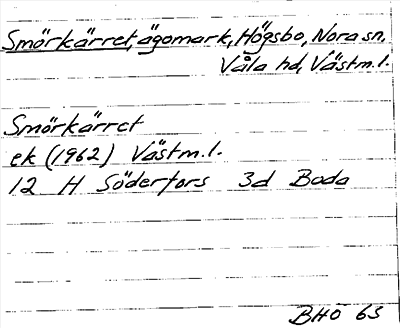 Smörkärret, ägomark, Högsbo, Nora sn,
Våla hd, Västm.l.
Smörkärret
ek (1962) Västm.l.
12 H Söderfors 3d Boda
BHÖ 63